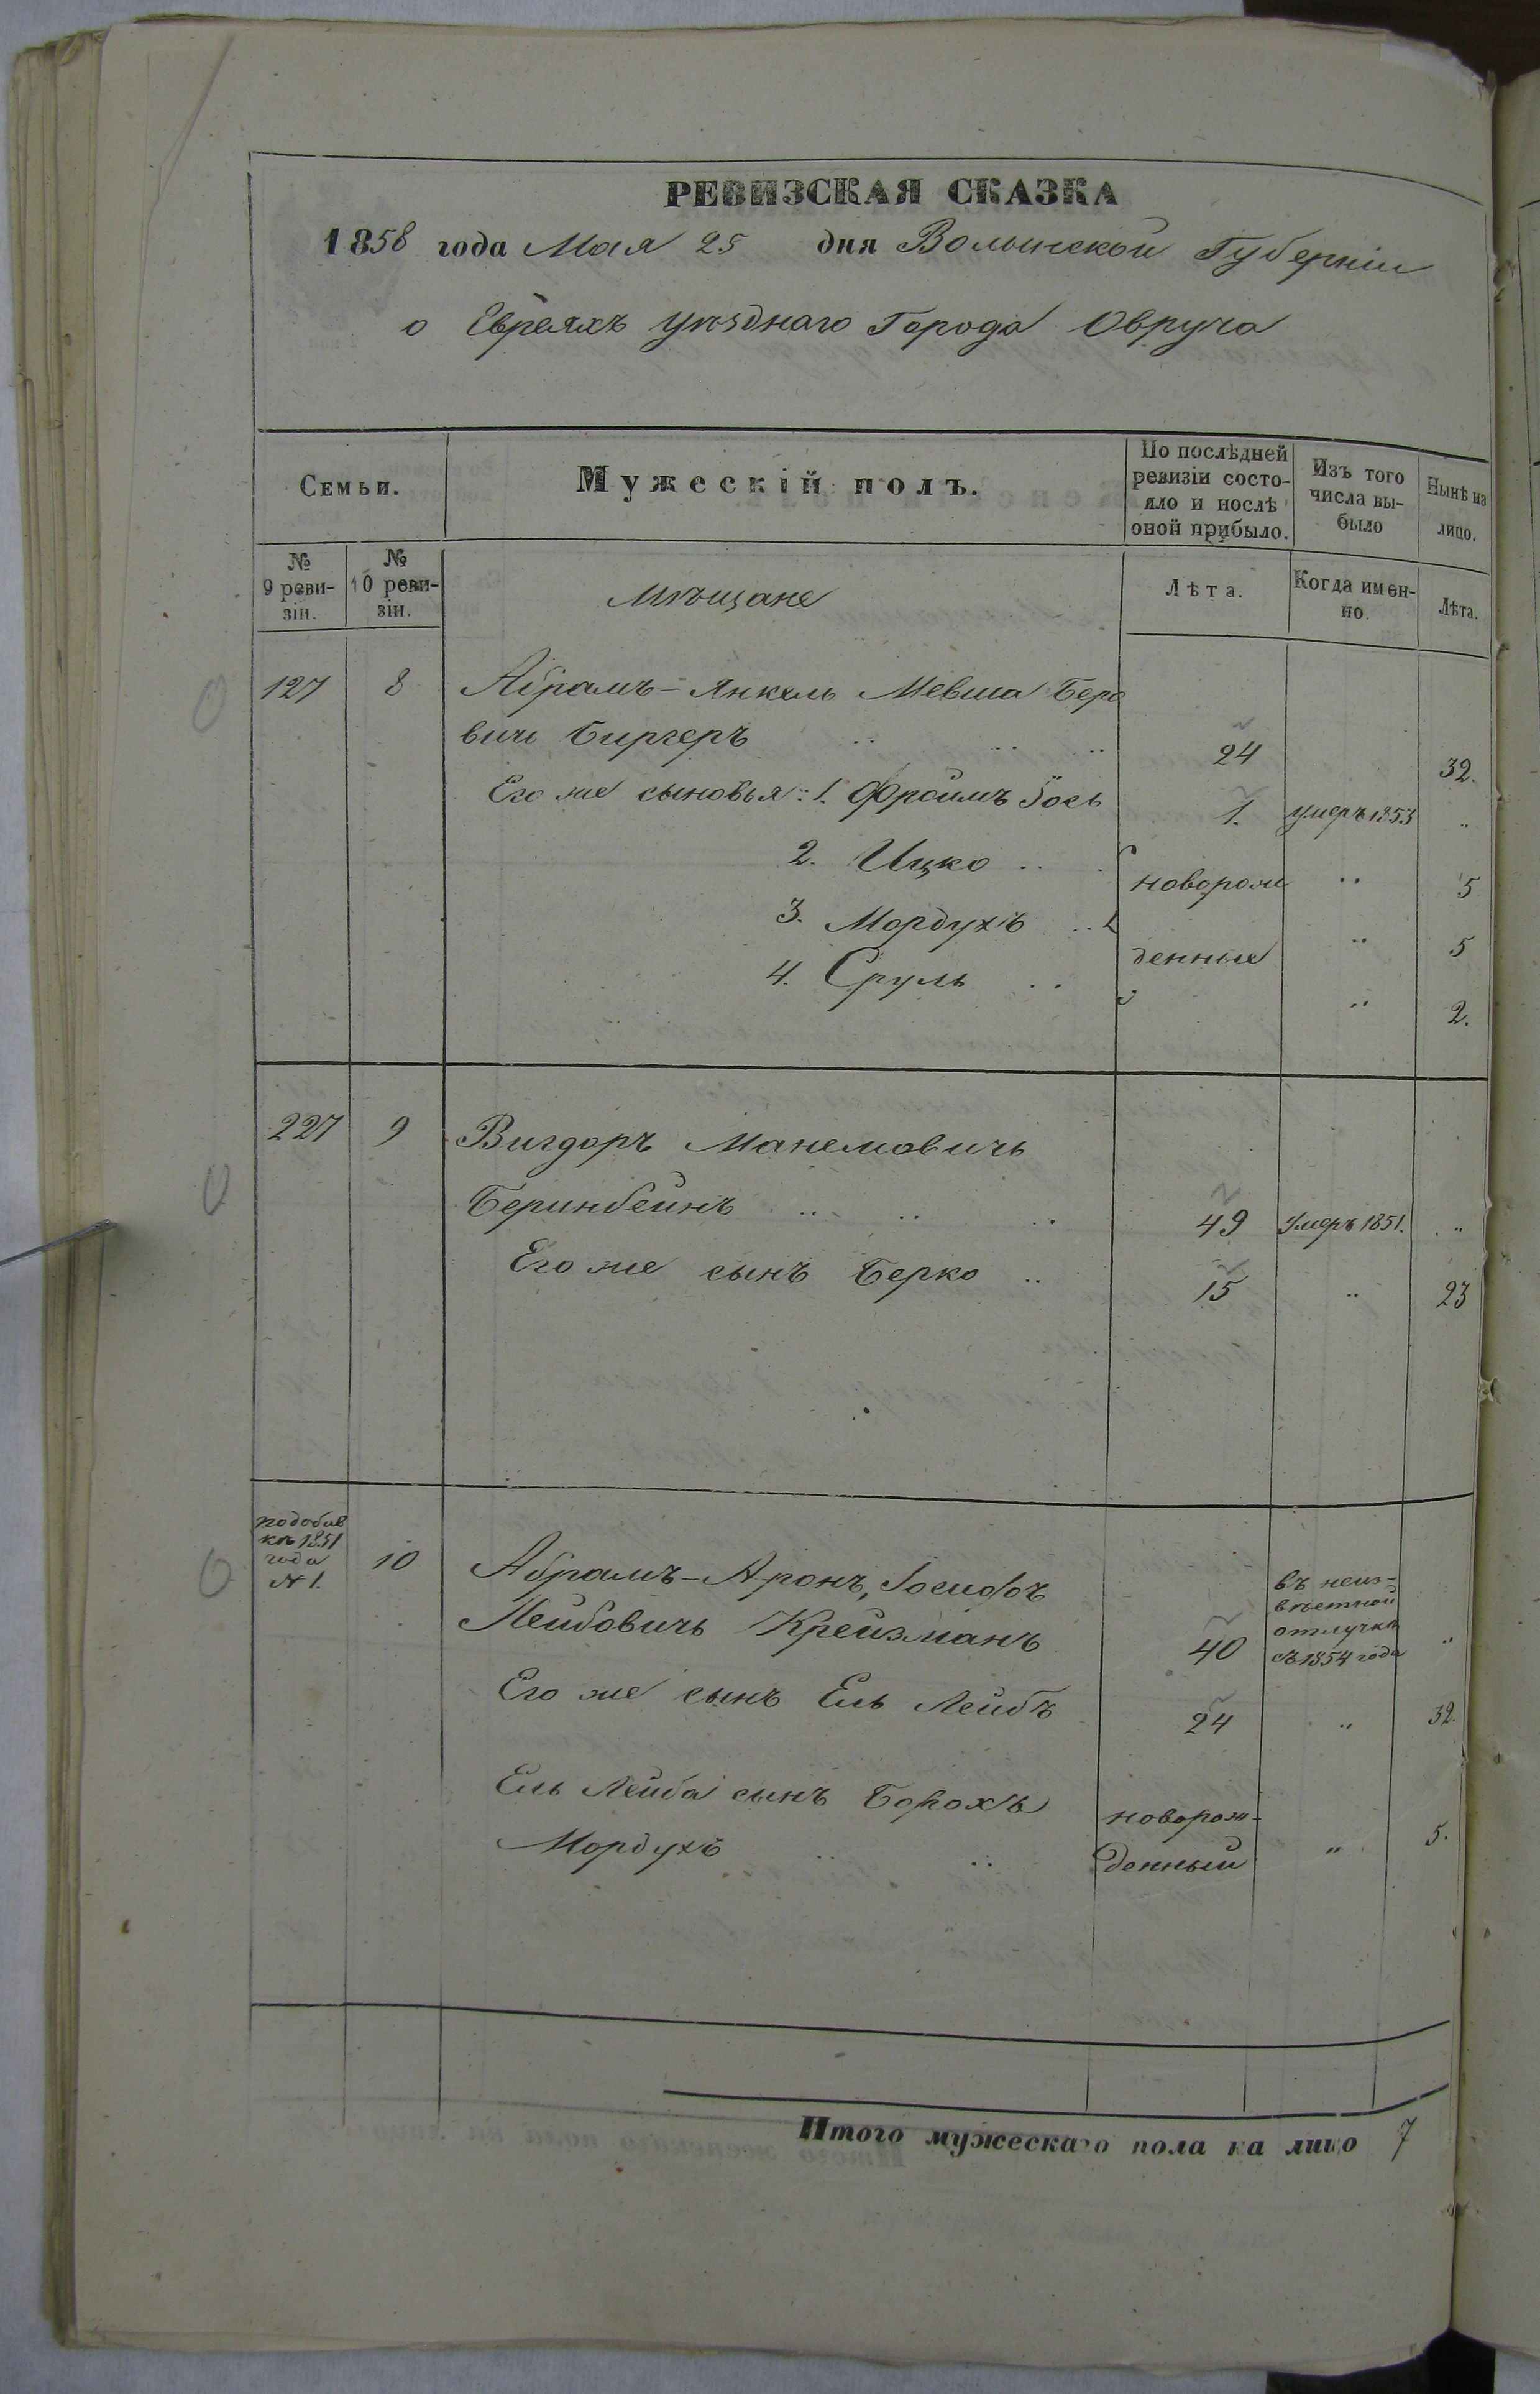 РЕВИЗСКАЯ СКАЗКА
1858 года Мая 25 дня Волынской Губерніи
о Евреяхъ уѣзднаго Города Овруча
Семьи.
Мужескій полъ.
По послѣдней ревизіи состояло и послѣ оной прибыло.
Изъ того числа выбыло
Нынѣ на лицо.
№ 9 ревизіи.
№ 10 ревизіи.
Мѣщане
Лѣта.
Когда именно.
Лѣта.
127 8 Абрамъ-Янкель Мевша Беро
вичь Биргеръ 24 32.
Его же сыновья: 1. Фроимъ Іось 1. умеръ 1853 "
2. Ицко новорож " 5
3. Мордухъ денные " 5
4. Сруль " 2.
227 9 Вигдоръ Манелювичь
Беринбейнъ 49 умеръ 1851. "
Его же сынъ Берко 15 " 23
подобав
къ 1851
года
№ 1.
10 Абрамъ-Аронъ, Іосифъ
Лейбовичь Крейзманъ 40 "
въ неиз-
вѣстной
отлучкѣ
съ 1854 года
Его же сынъ Ель Лейбъ 24 " 32.
Ель Лейба сынъ Борохъ новорож-
Мордухъ денный " 5.
Итого мужескаго пола на лицо 7